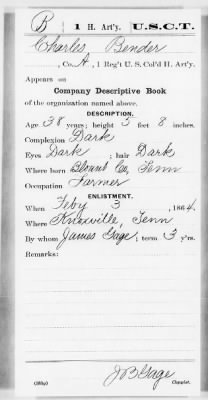 B 1 H. Art'y. U.S.C.T.
Charles Bender
, Co. A, 1 Reg't U. S. Col'd H. Art'y.
Appears on
Company Descriptive Book
of the organization named above.
DESCRIPTION.
Age 38 years; height 5 feet 8 inches.
Complexion Dark
Eyes Dark ; hair Dark
Where born Blount Co, Tenn
Occupation Farmer
ENLISTMENT.
When Feby 3 , 1864.
Where Knoxville, Tenn
By whom James Gage; term 3 y'rs.
Remarks:
J B Gage
Copyist.